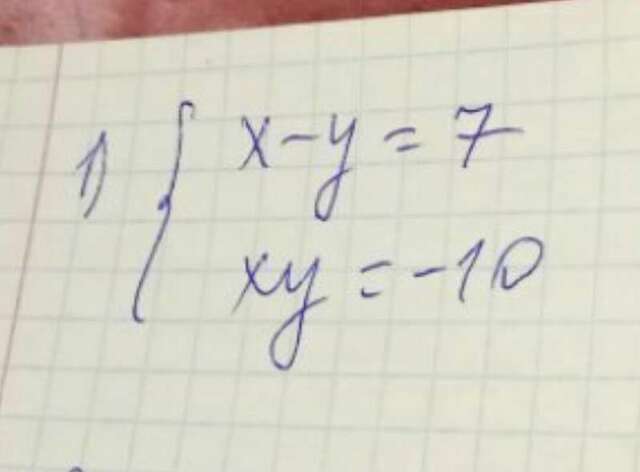 1) { x-y=7
xy=-10